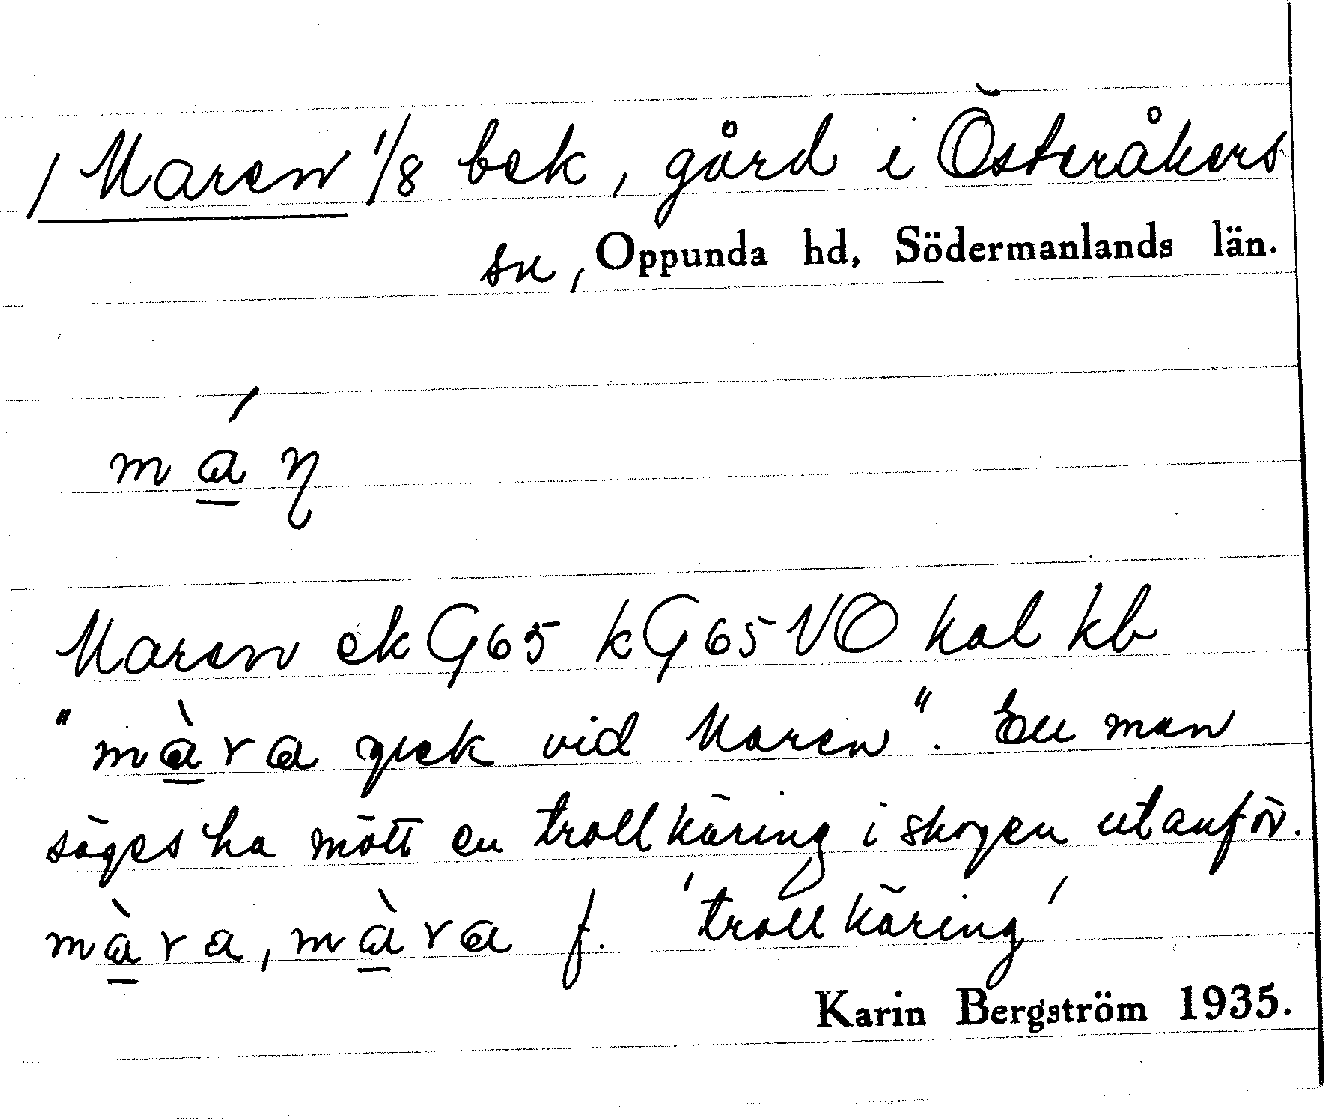 / Maren 1/8 bek, gård i Österåkers
sn, Oppunda hd, Södermanlands län.
má̱ η
Maren ek G65 kG65VO kal kb
"mà̱ra gick vid Maren". En man
säges ha mött en trollkäring i skogen utanför.
mà̱ra, mà̱ra f. 'trollkäring'
Karin Bergström 1935.